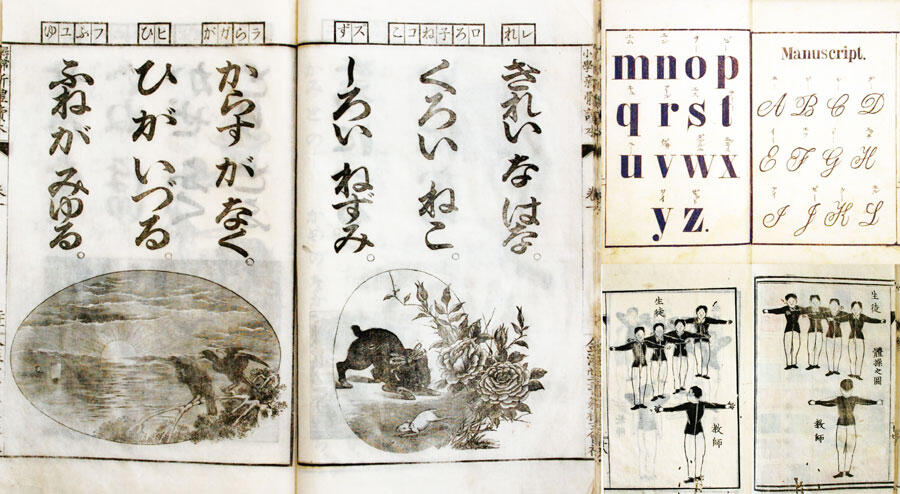 レれ
ロろ子ねコこ
ズず
きれいな はな。
くろい ねこ。
しろい ねずみ。
ラらガが
ヒひ
フふユゆ
からすが なく。
ひが いづる。
ふねが みゆる。
m n o p
q r s t
u v w x
y z.
Manuscript.
A B C D
E F G H
I J K L
生徒
教師
生徒
體操之圖
教師